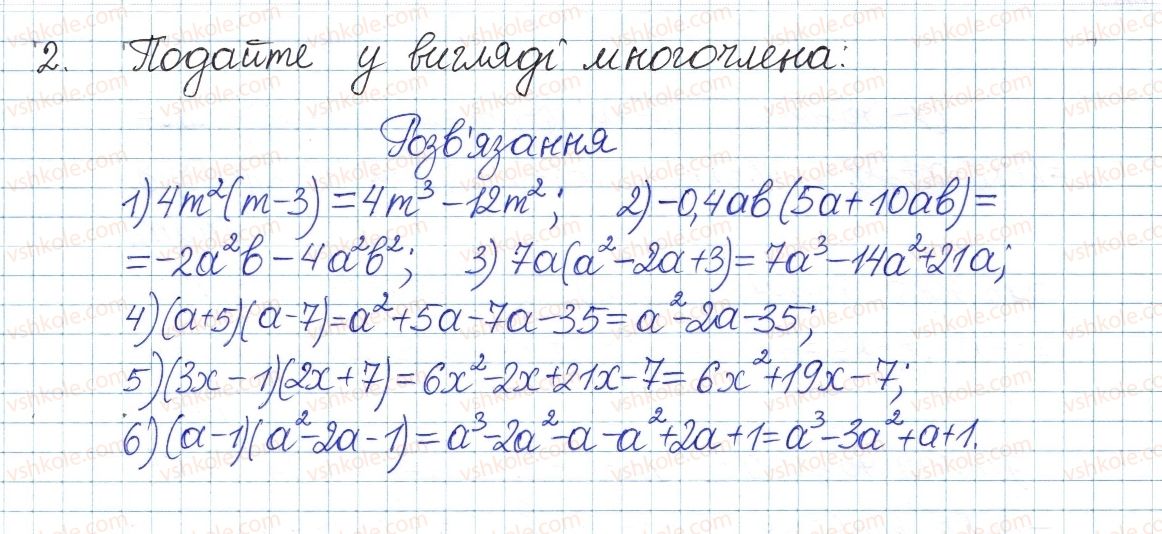 2. Подайте у вигляді многочлена:
Розв'язання
1) 4m²(m-3) = 4m³ - 12m²; 2) -0,4ab(5a+10ab) =
= -2a²b - 4a²b²; 3) 7a(a²-2a+3) = 7a³-14a²+21a;
4) (a+5)(a-7) = a²+5a-7a-35 = a²-2a-35;
5) (3x-1)(2x+7) = 6x²-2x+21x-7 = 6x²+19x-7;
6) (a-1)(a²-2a-1) = a³-2a²-a-a²+2a+1 = a³-3a²+a+1.